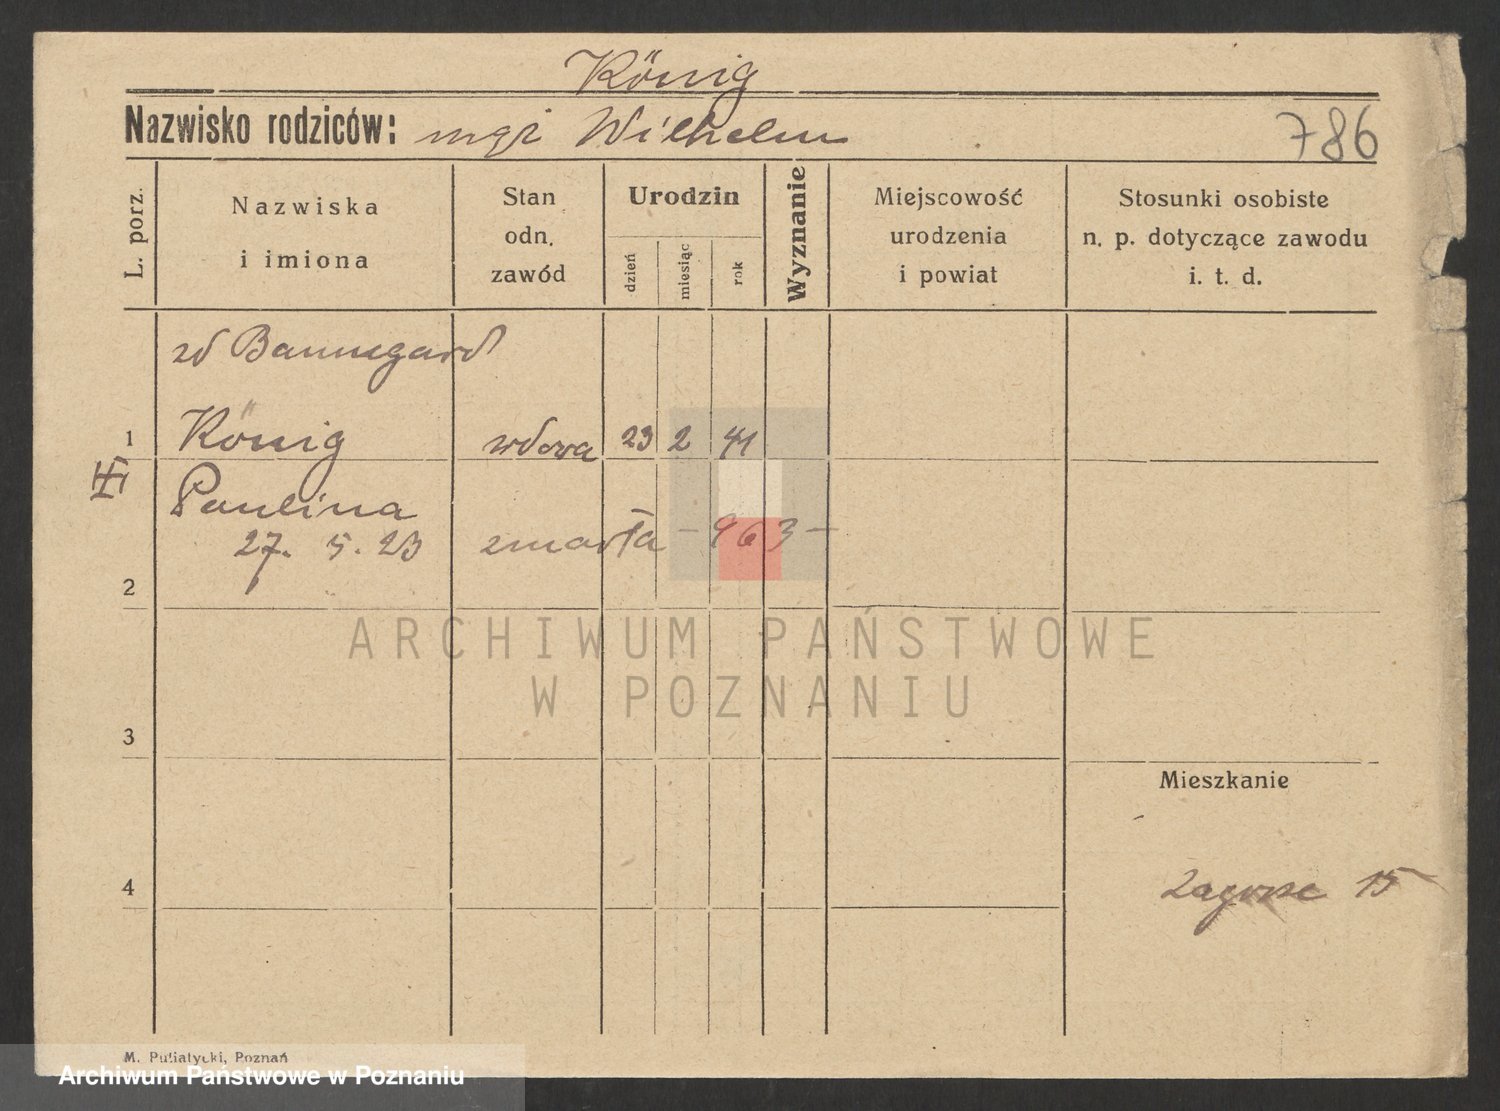 König
Nazwisko rodziców: mąż Wilhelm
786
L. porz.
Nazwiska
i imiona
Stan
odn.
zawód
Urodzin
dzień
miesiąc
rok
Wyznanie
Miejscowość
urodzenia
i powiat
Stosunki osobiste
n. p. dotyczące zawodu
i. t. d.
zd Baumgard
1 König wdowa 23 2 41
Paulina
27. 5. 23 zmarła - 963 -
2
ARCHIWUM PAŃSTWOWE
W POZNANIU
3
Mieszkanie
4
Zagórze 15
M. Putiatycki, Poznań
Archiwum Państwowe w Poznaniu